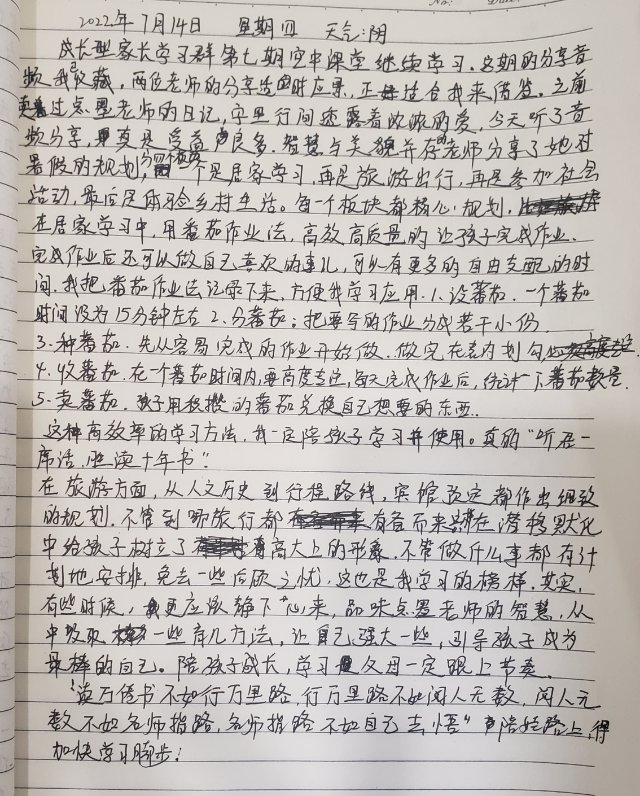 2022年7月14日 星期四 天气:阴
成长型家长学习群第七期空中课堂继续学习.名期的分享音
频我已收藏，两位老师的分享适时应景，正适合我来借鉴.之前
看过点墨老师的日记，字里行间透露着浓浓的爱，今天听了音
频分享，真是受益良多.智慧与美貌并存的老师分享了她对
暑假的规划，分四个板块一个是居家学习，再是旅游出行，再是参加社会
活动，最后是体验乡村生活。每一个板块都精心规划，
在居家学习中，用番茄作业法，高效高质量的让孩子完成作业.
完成作业后还可以做自己喜欢的事儿，可以有更多的自由支配的时
间.我把番茄作业法记录下来，方便我学习应用.1.设番茄.一个番茄
时间设为15分钟左右 2.分番茄：把要写的作业分成若干小份.
3.种番茄.先从容易完成的作业开始做.做完在表内划勾
4.收番茄.在一个番茄时间内，要高度专注，每天完成作业后，统计一下番茄数量.
5.卖番茄.孩子用积攒的番茄兑换自己想要的东西.
这种高效率的学习方法，我一定陪孩子学习并使用。真的"听君一
席话，胜读十年书"
在旅游方面，从人文历史到行程路线，宾馆预定都作出细致
的规划，不管到哪旅行都有备而来.在潜移默化
中给孩子树立了高大上的形象.不管做什么事都有计
划地安排，免去一些后顾之忧.这也是我学习的榜样.其实，
有些时候，更应该静下心来，品味点墨老师的智慧，从
中汲取一些育儿方法，让自己强大一些，引导孩子成为
最棒的自己。陪孩子成长，学习父母一定跟上节奏.
"读万卷书不如行万里路，行万里路不如阅人无数，阅人无
数不如名师指路，名师指路不如自己去悟"陪娃路上，得
加快学习脚步!